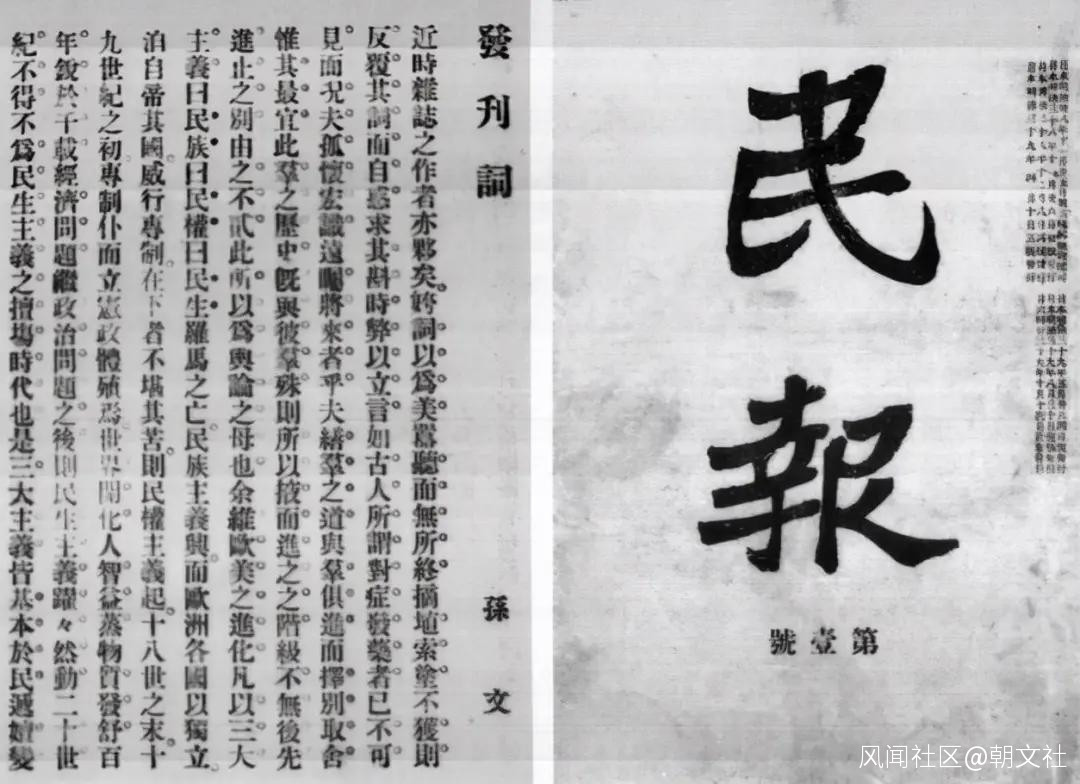 民報
第壹號
發刊詞
孫文
近時雜誌之作者亦夥矣。姱詞以爲美囂聽而無所終摘埴索塗不獲則
反覆其詞而自惑求其斟時弊以立言如古人所謂對症發藥者已不可
見而況夫孤懷宏識遠矚將來者乎夫繕羣之道與羣俱進而擇別取舍
惟其最宜此羣之歷史旣與彼羣殊則所以掖而進之之階級不無後先
進止之別由之不貳此所以爲輿論之母也余維歐美之進化凡以三大
主義曰民族曰民權曰民生羅馬之亡民族主義興而歐洲各國以獨立
洎自帝其國威行專制在下者不堪其苦則民權主義起十八世之末十
九世紀之初專制仆而立憲政體殖焉世界開化人智益蒸物質發舒百
年銳於千載經濟問題繼政治問題之後則民生主義躍々然動二十世
紀不得不爲民生主義之擅塲時代也是三大主義皆基本於民遞嬗變
风闻社区@朝文社